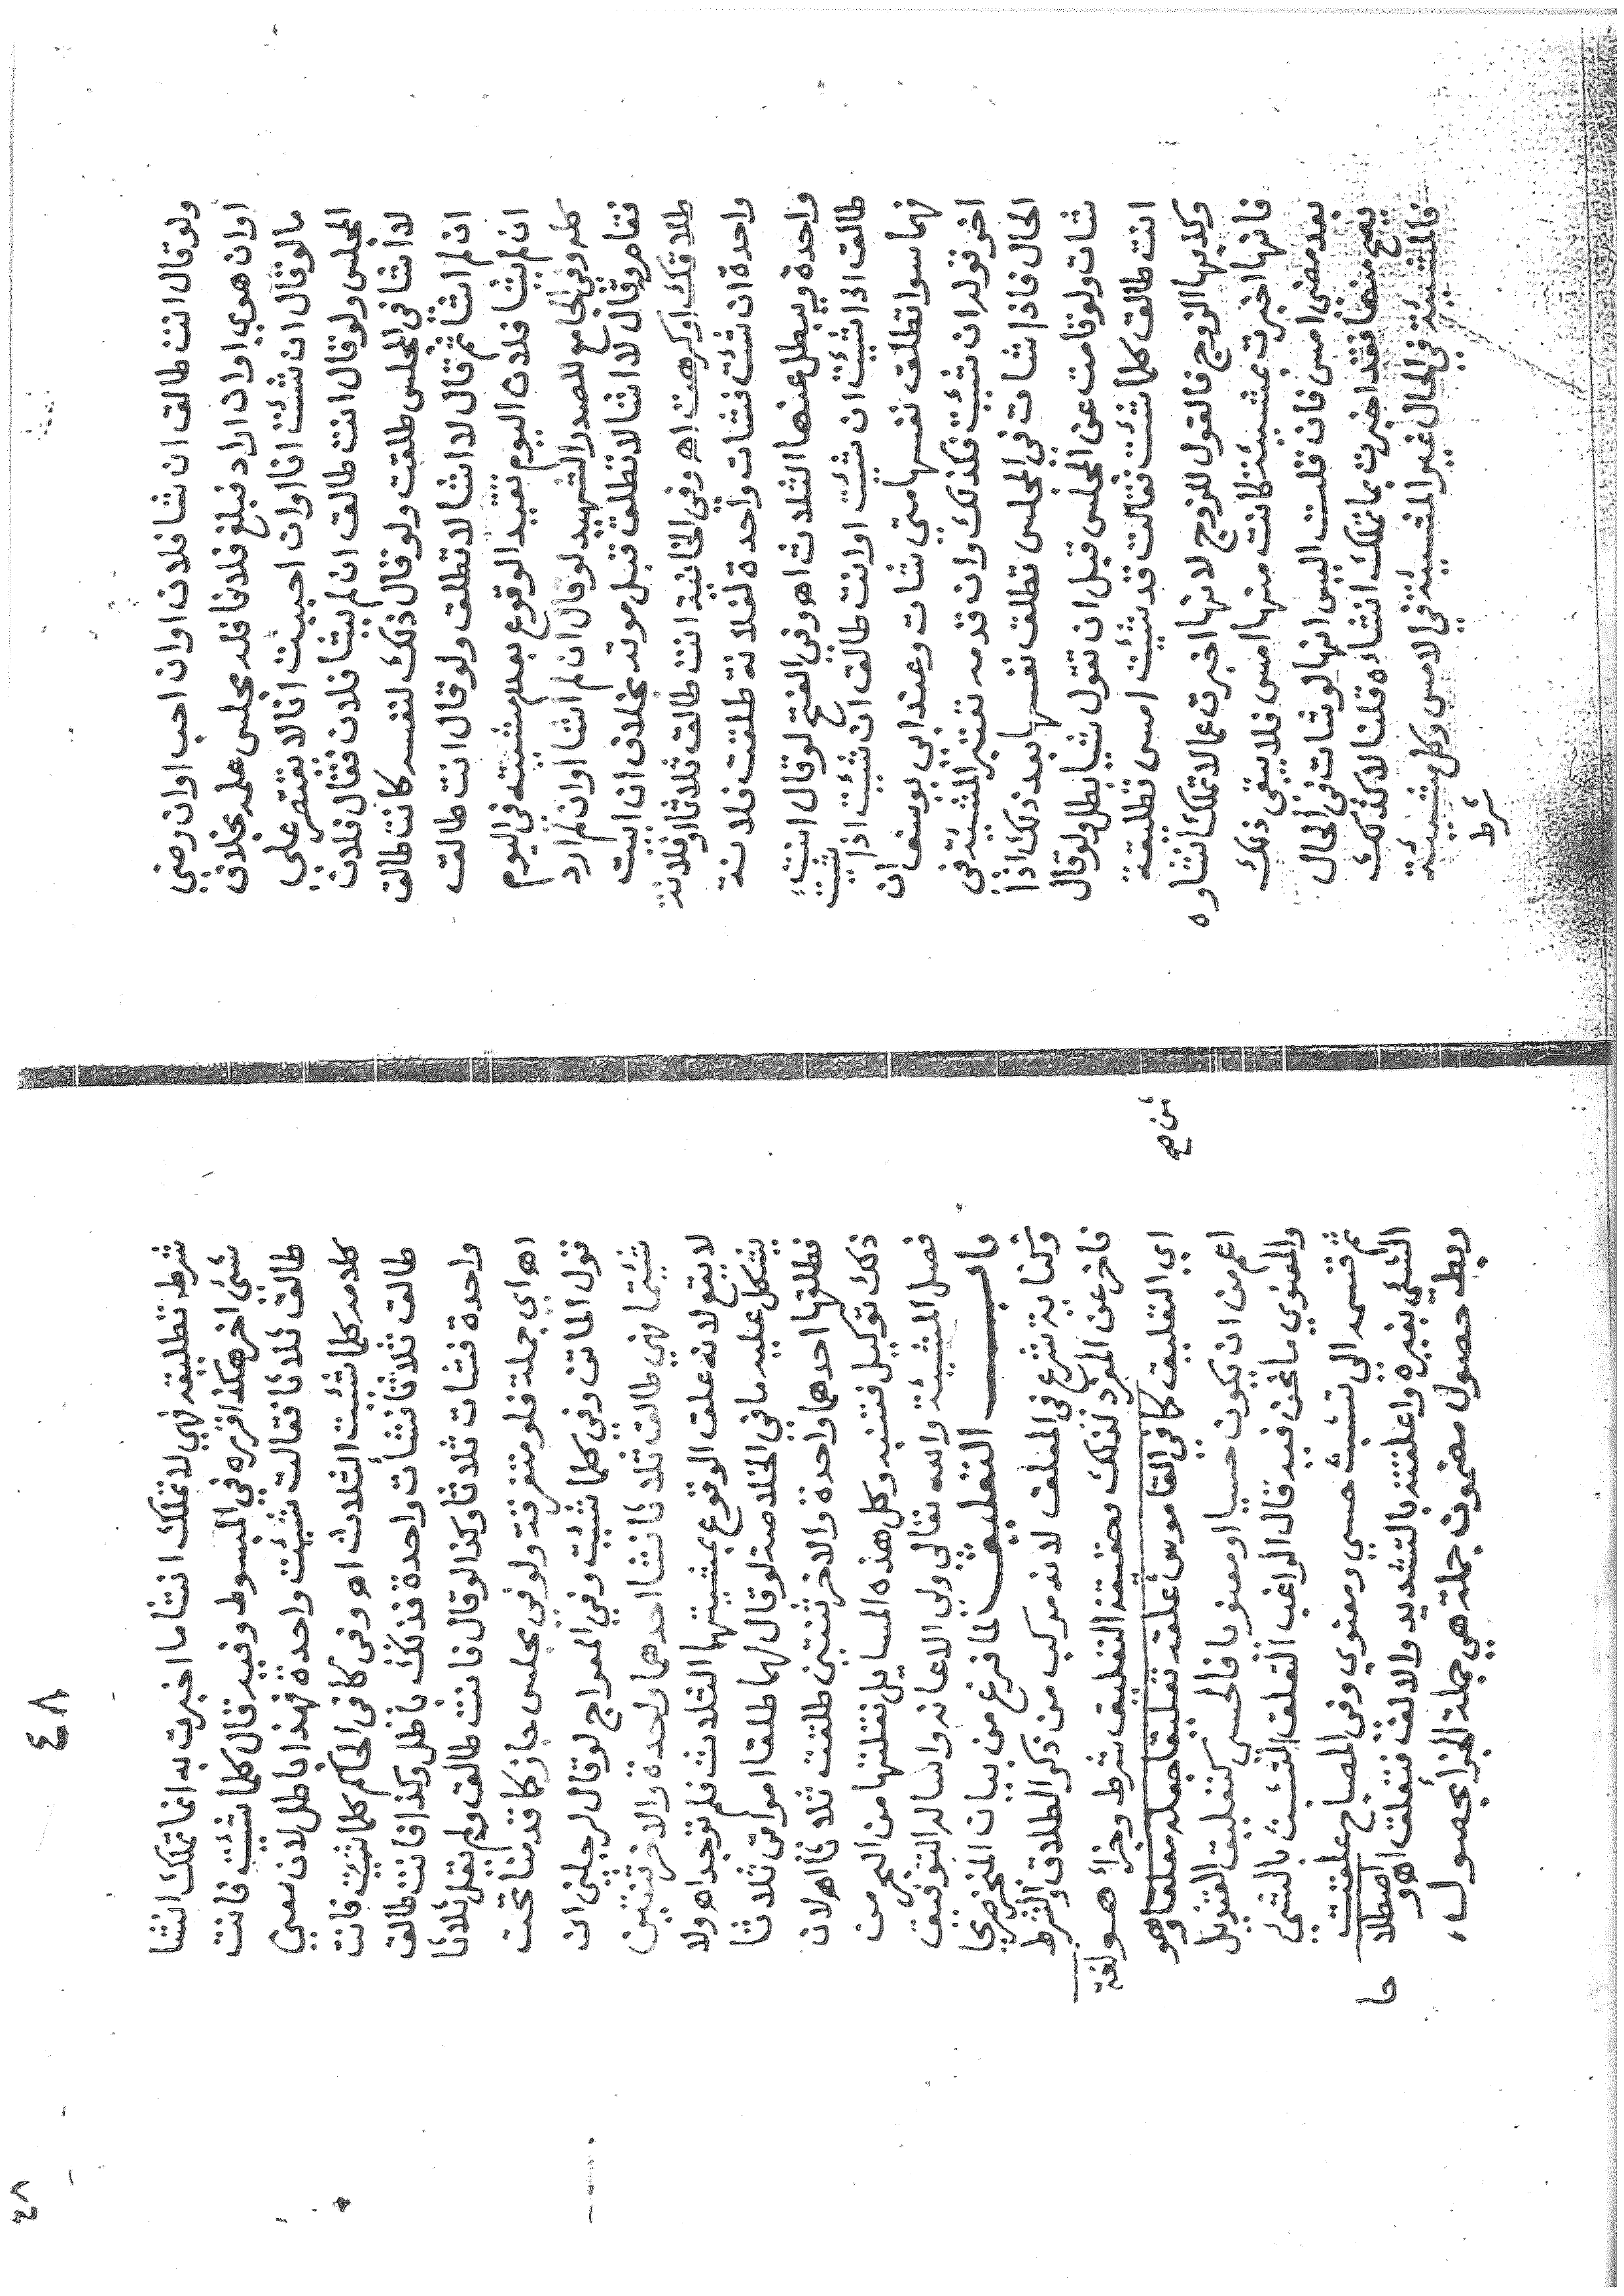 ولو قال انت طالق ان شا فلان او ان احب او ان رضي
او ان هوي او ان اراد فبلغ فلانا فله مجلس علمه بخلاف
ما لو قال ان شئت انا او ان احببت انا لا يقتصر علي
المجلس ولو قال انت طالق ان لم يشا فلان فقال فلان
لا اشا في المجلس طلقت ولو قال ذلك لنفسه كانت طالق
ان لم اشا ثم قال لا اشا لا تطلق ولو قال انت طالق
ان لم يشا فلان اليوم تقيد الوقوع بعدم مشيته في اليوم
كله وفي الجامع للصدر الشهيد لو قال ان لم اشا او ان لم ارد
فقام وقال لا اشا لا تطلق قبل موته بخلاف ان ابيت
طلاقك او كرهت اه وفي الخانية انت طالق ثلاثا او فلانة
واحدة ان شئت فشات واحدة لفلانة طلقت فلانة
واحدة ويبطل عنها الثلاث اه وفي الفتح لو قال انت
طالق اذا شئت ان شئت او انت طالق ان شئت اذا شئت
فهما سوا تطلق نفسها متي شات وعند ابي يوسف ان
اخر قوله ان شئت فكذلك وان قدمه تعتبر المشيئة في
الحال فاذا شات في المجلس تطلق نفسها بعد ذلك اذا
شات ولو قامت عن المجلس قبل ان تقول شيا بطل ولو قال
انت طالق كلما شئت فقالت قد شئت امس تطليقة
وكذبها الزوج فالقول للزوج لانها اخبرت عما لا تملك انشاوه
فانها اخبرت بمشيئة كانت منها امس فلا يبقي ذلك
بعد مضي امس فان قلت اليس انها لو شات في الحال
يصح منها فقد اخبرت بما تملك انشاه قلنا لا كذلك
فالمشيئة في الحال غير المشيئة في الامس وكل مشيئة
شرط
٤٨
شرط تطليقه فهي لا تملك انشا ما اخبرت به انما تملك انشا
شئ اخر هكذا قرره في المبسوط وفيه قال كلما شئت فانت
طالق ثلاثا فقالت شئت واحدة فهذا باطل لان معني
كلامه كلما شئت الثلاث اه وفي كافي الحاكم كلما شئت فانت
طالق ثلاثا فشات واحدة فذلك باطل وكذا فانت طالق
واحدة فشات ثلاثا وكذا لو قال فانت طالق ولم تقل ثلاثا
اه اي جملة فلو متفرقة ولو في مجلس جاز كما قدمنا تحت
قول الماتن وفي كلما شئت وفي المعراج لو قال لرجلين ان
شئتما فهي طالق ثلاثا فشا احدهما واحدة والاخر ثنتين
لا يقع لانه علق الوقوع بمشيتهما الثلاث فلم توجد اه ولا
يشكل عليه ما في الخلاصة لو قال لهما طلقا امراتي ثلاثا
فطلقها احدهما واحدة والاخر ثنتين طلقت ثلاثا اه لان
ذلك توكيل فتنبه وكل هذه المسايل نقلتها من البحر من
فصل المشيئة والله تعالي ولي الاعانة واساله التوفيق
باب التعليق لما فرغ من بيان المنجز صريحا
وكناية شرع في المعلق لانه مركب من ذكر الطلاق والشرط
فاخر عن المفرد لذلك بحقيقة التعليق شرط وجزا هو لغة
اي التعليق كما في القاموس علقه تعليقا جعله معلقا وهو
اعم من ان يكون حسيا او معنويا فالحسي كتعليق القنديل
والمعنوي ما نحن فيه قال الراغب التعلق التشبث بالشئ
ثم قسمه الي تشبث حسي ومعنوي وفي المصباح علقت
الشئ بغيره واعلقته بالتشديد والالف فتعلق اه و اصطلاحا
ربط حصول مضمون جملة هي جملة الجزا بحصول